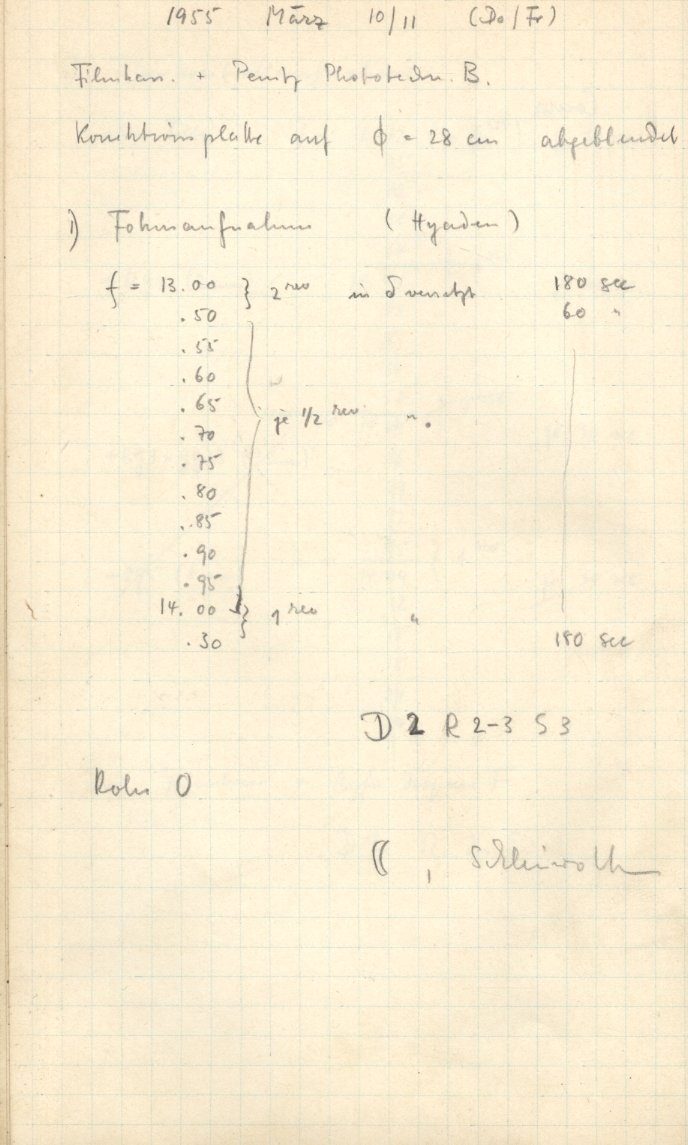 1955 März 10/11 (Do/Fr)
Filmkass. + Perutz Phototechn. B.
Korrektionsplatte auf ϕ = 28 cm abgeblendet
1) Fokusaufnahme (Hyaden)
f = 13.00 } 2 rev in δ versetzt 180 sec
.50 60 "
.55
.60
.65 je 1/2 rev "
.70
.75
.80
.85
.90
.95
14.00 } 1 rev "
.30 180 sec
D 2 R 2-3 S 3
Rohr O
☾ ,